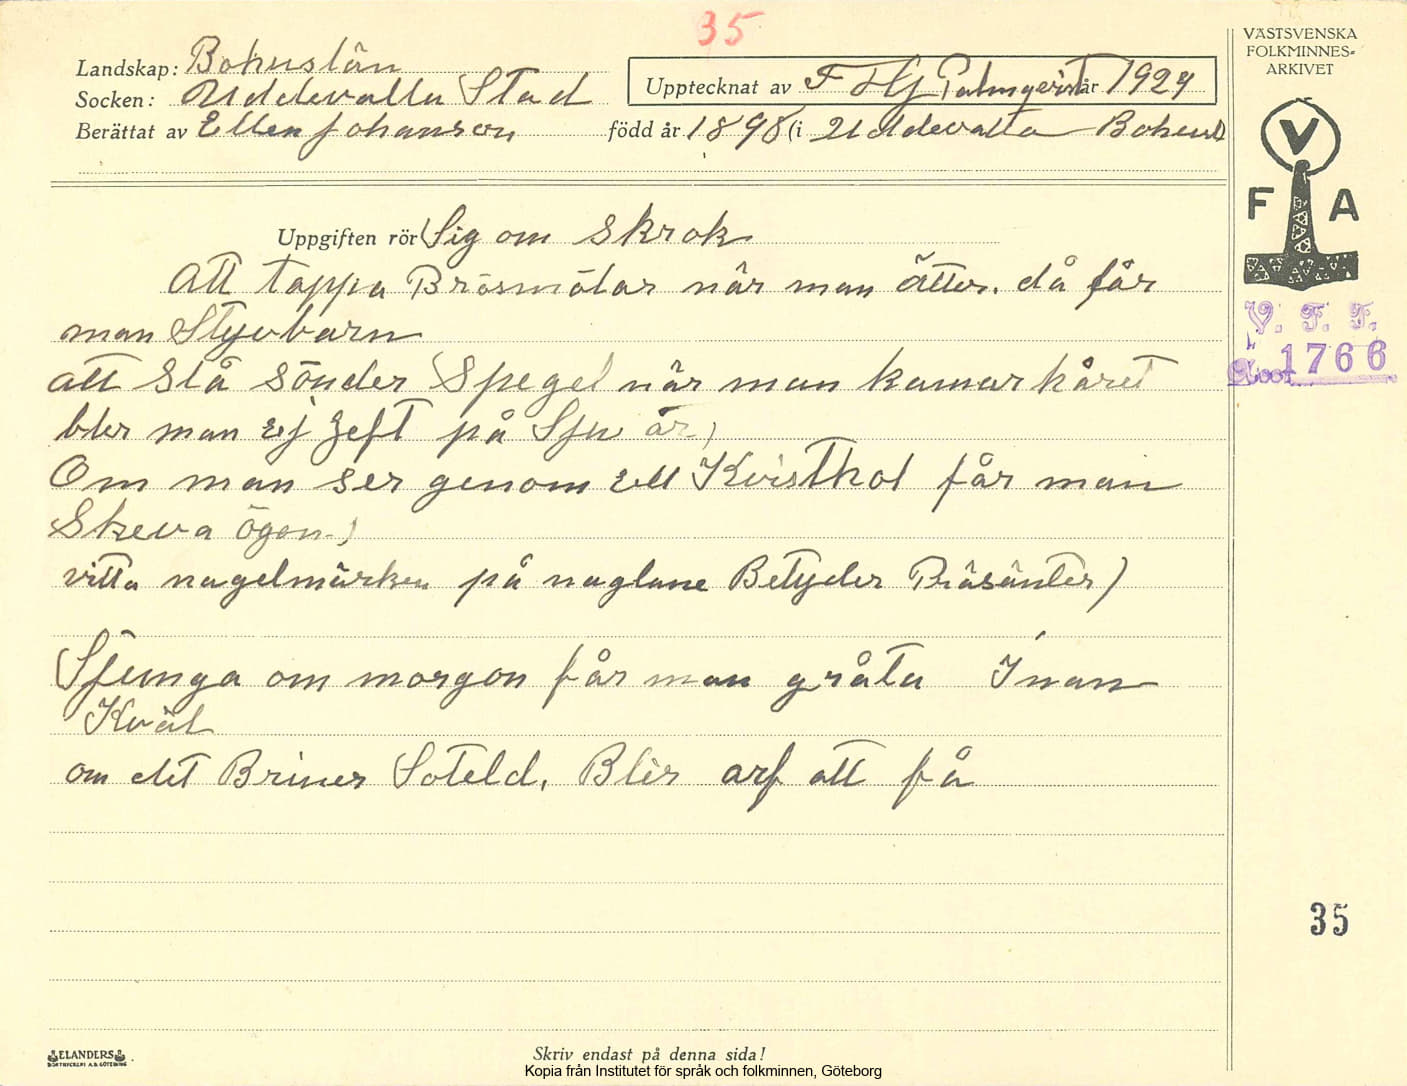 35
Landskap: Bohuslän
Socken: Uddevalla Stad
Upptecknat av F Hj Palmqvist år 1924
Berättat av Ellen Johanson född år 1890 (i Uddevalla Bohusl
VÄSTSVENSKA
FOLKMINNES-
ARKIVET
V
F A
V. F. F.
1766
Uppgiften rör Sig om Skrok
Att tappa Brösmölar när man ätter. då får
man Styvbarn
att Slå Sönder Spegel när man kamar håret
bler man ej Jeft på Sju år)
Om man ser genom ell Kvisthol får man
Skeva ögon)
vitta nagelmärken på naglane Betyder Präsänter)
Sjunga om morgon får man gråta Inan
Kväl
om det Briner Soteld, Blir arf att få
35
ELANDERS
Skriv endast på denna sida!
Kopia från Institutet för språk och folkminnen, Göteborg